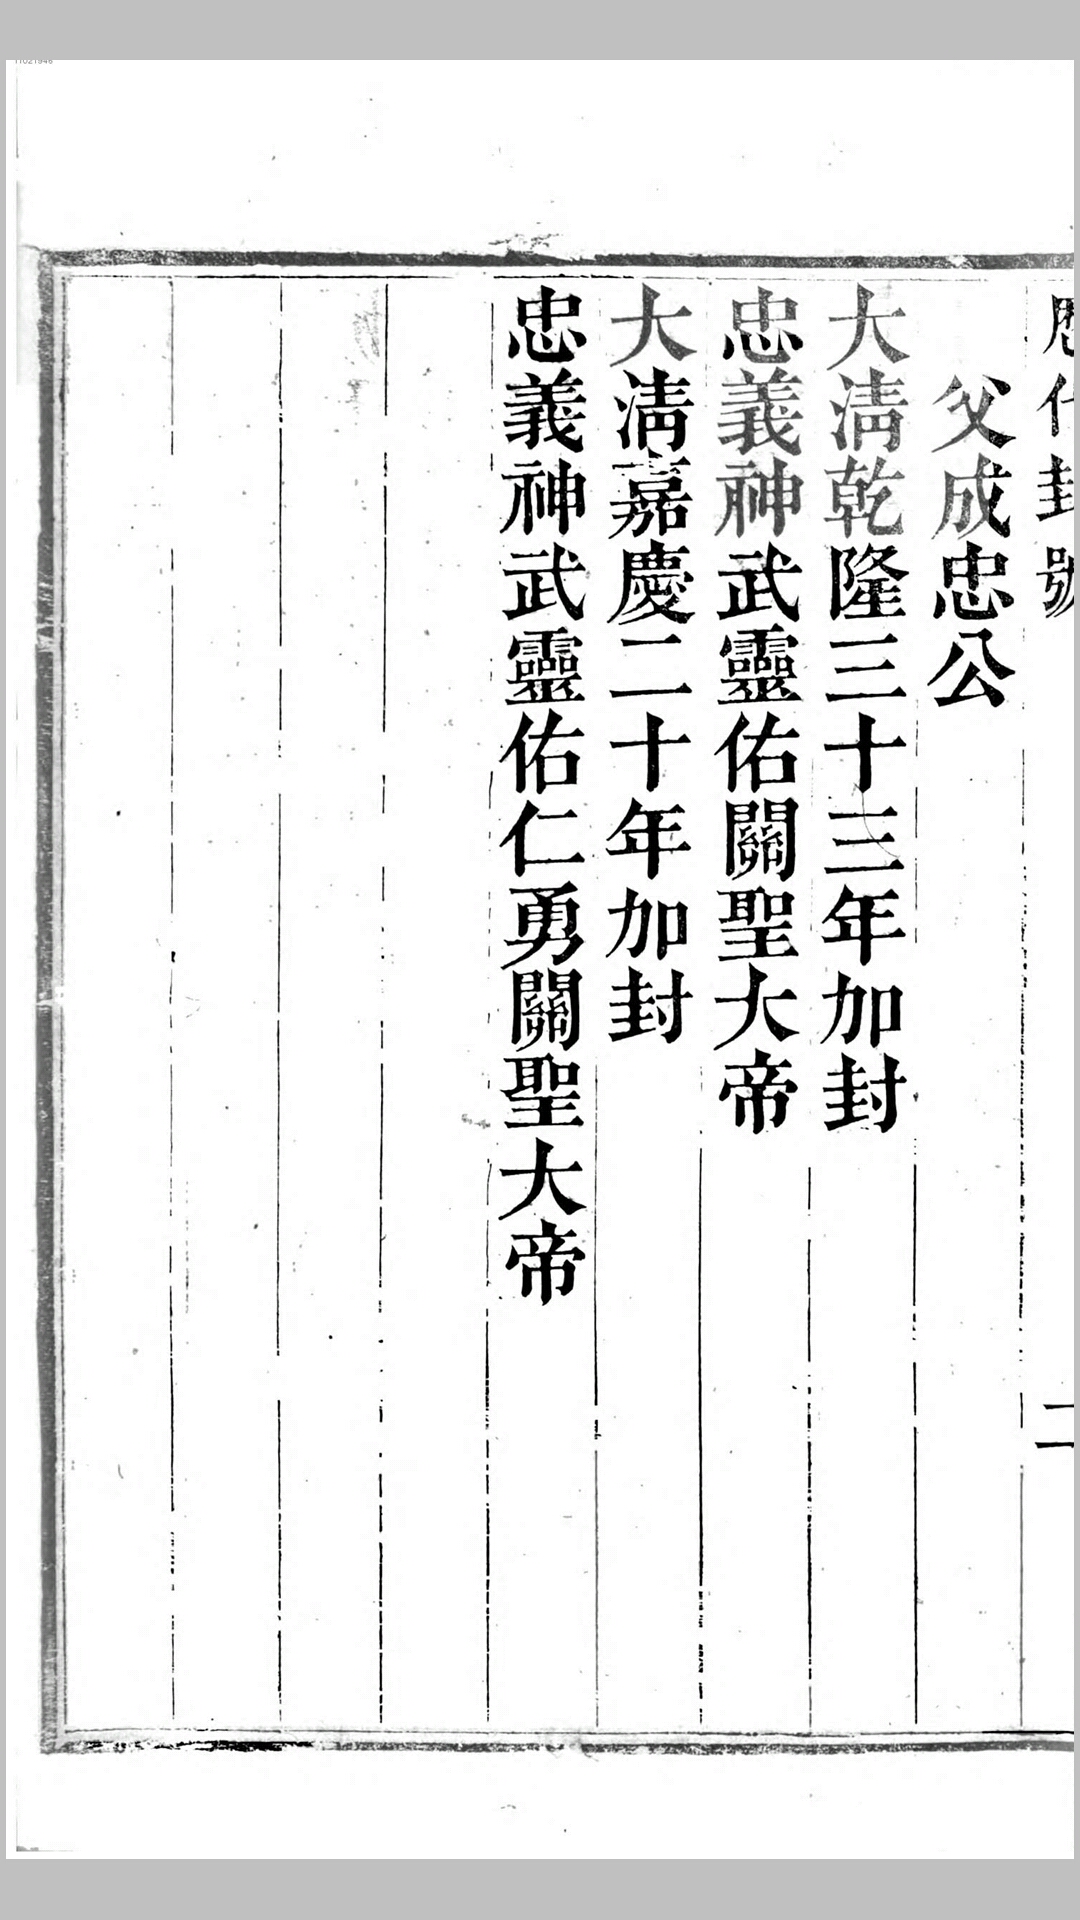 歷代封號
二
父成忠公
大淸乾隆三十三年加封
忠義神武靈佑關聖大帝
大淸嘉慶二十年加封
忠義神武靈佑仁勇關聖大帝
11021946